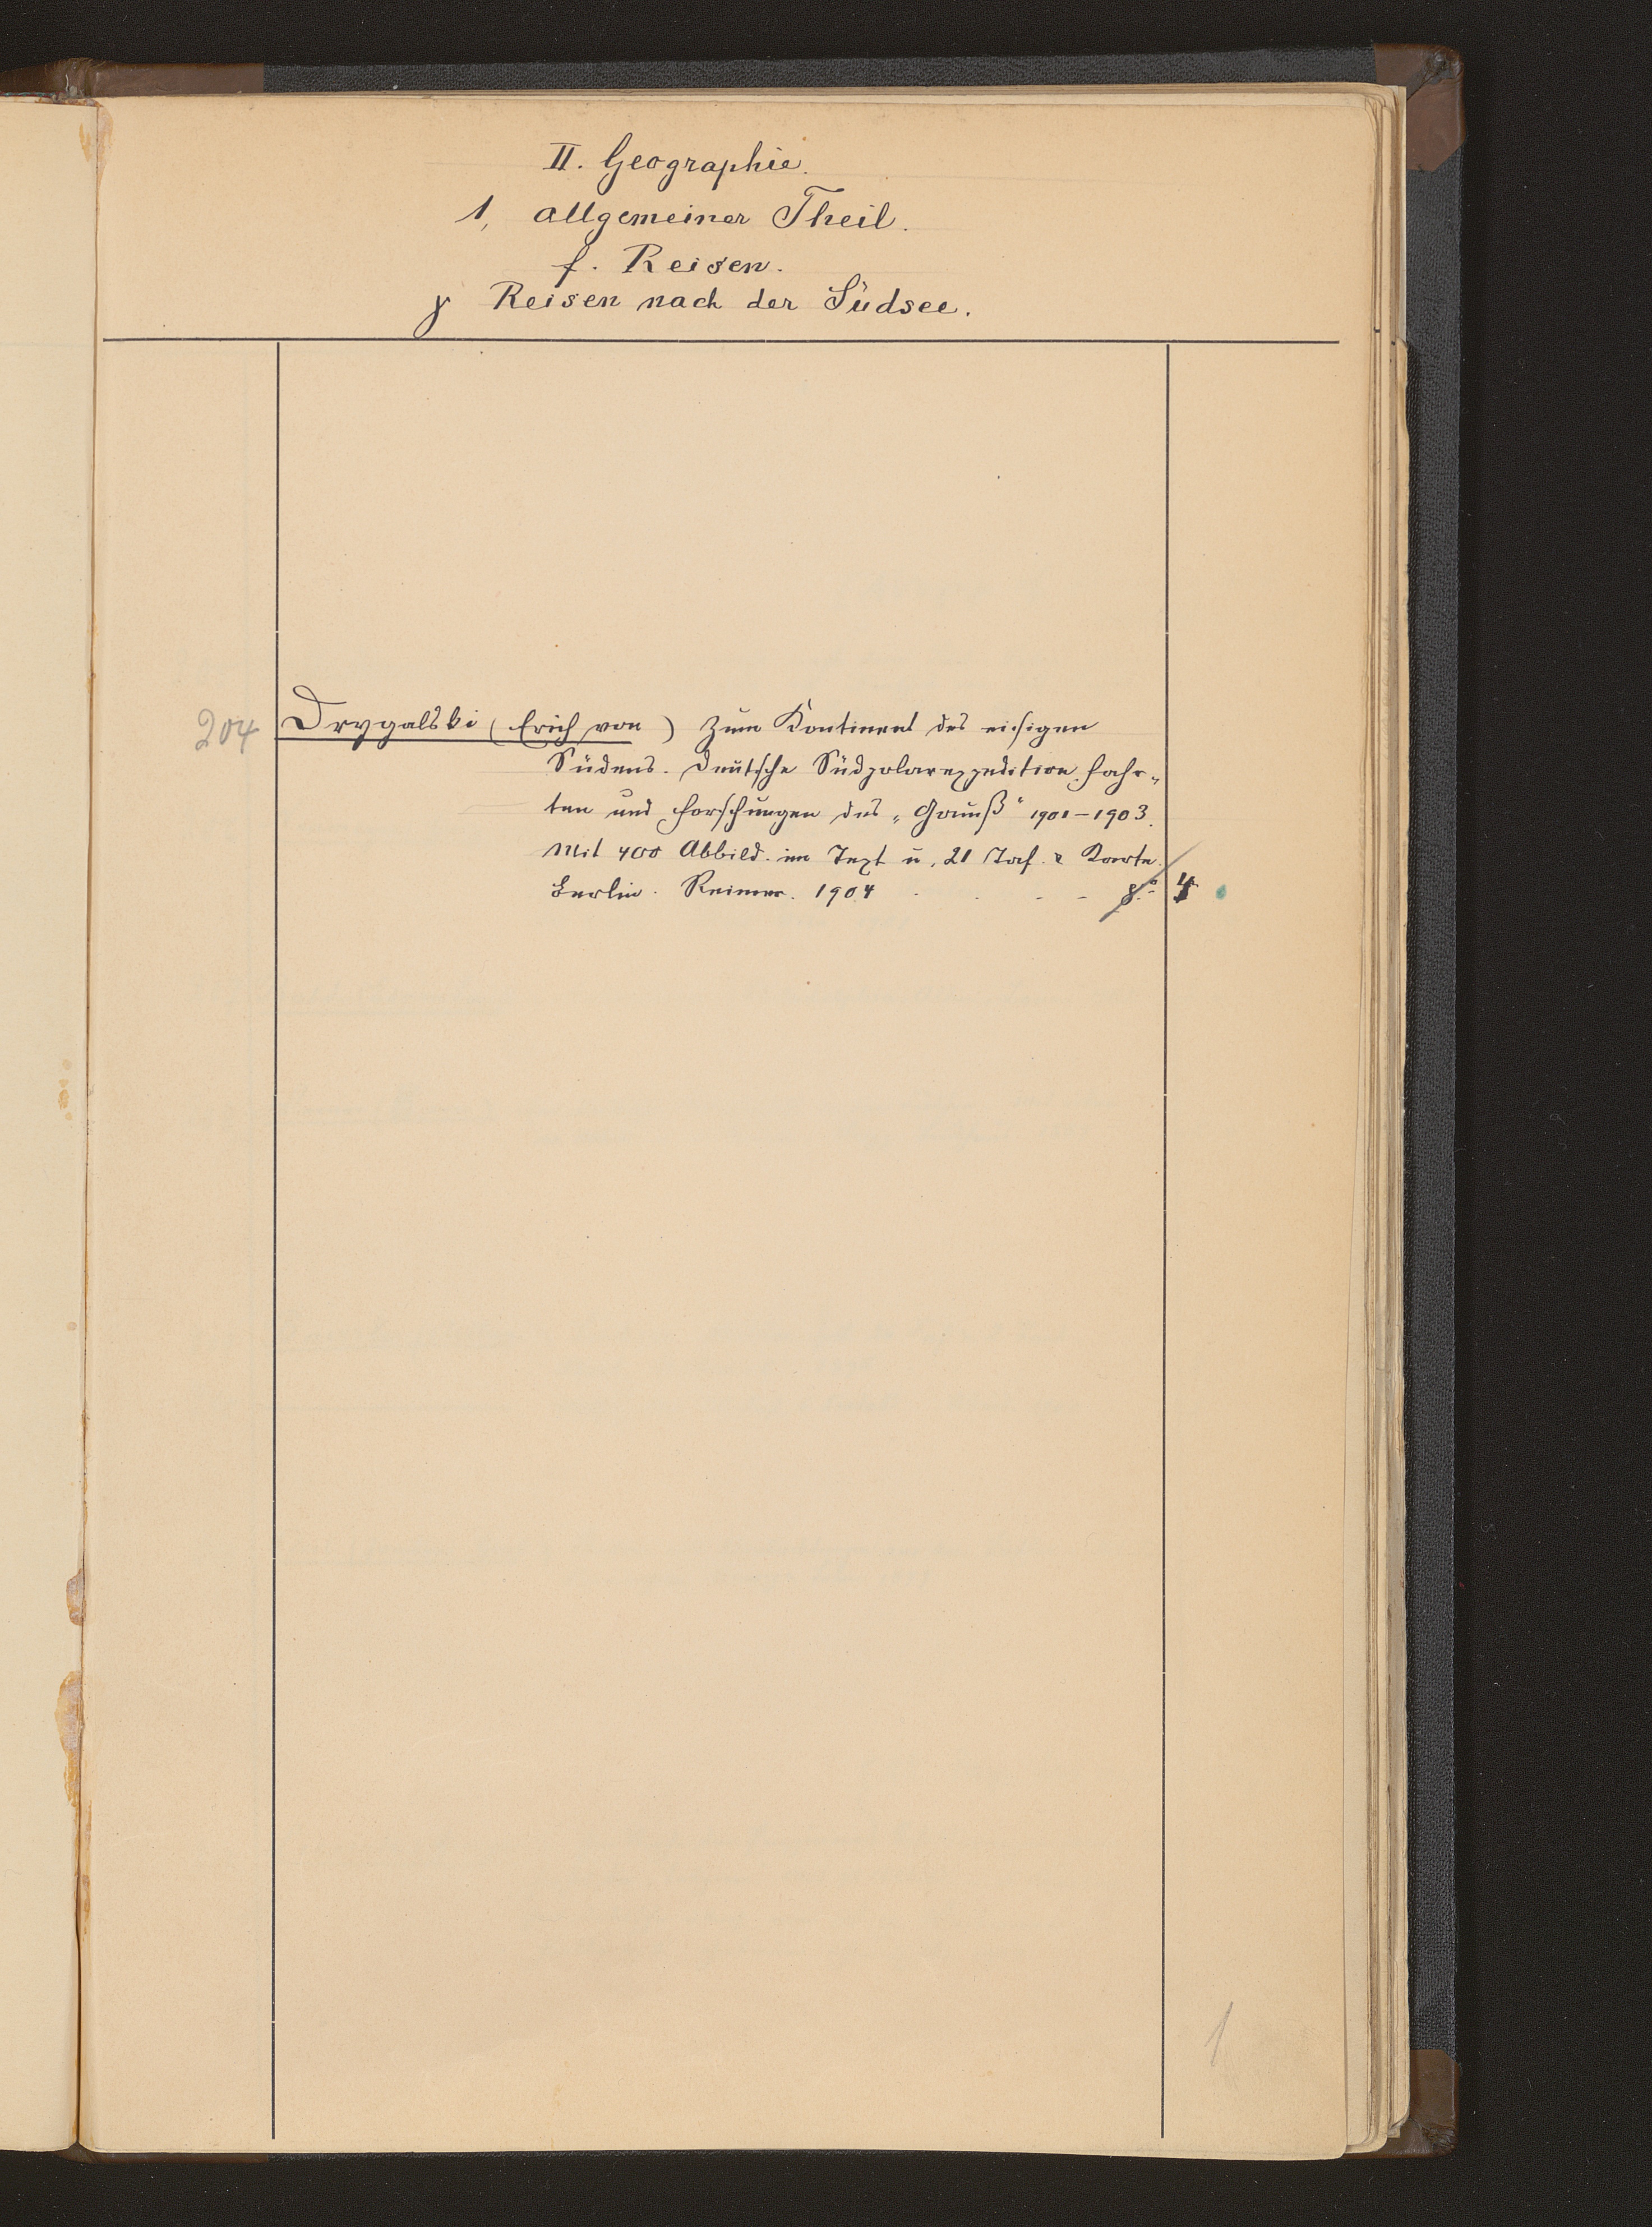 II. Geographie.
1, allgemeiner Theil.
f. Reisen.
γ Reisen nach der Südsee.
204 Drygalski (Erich von) Zum Kontinent des eisigen
Südens. Deutsche Südpolarexpedition. Fahr„
ten und Forschungen des „Gauß“ 1901–1903.
Mit 400 Abbild. im Text u. 21 Taf. & Karte.
Berlin. Reimer. 1904 . . - - 8° 4
1